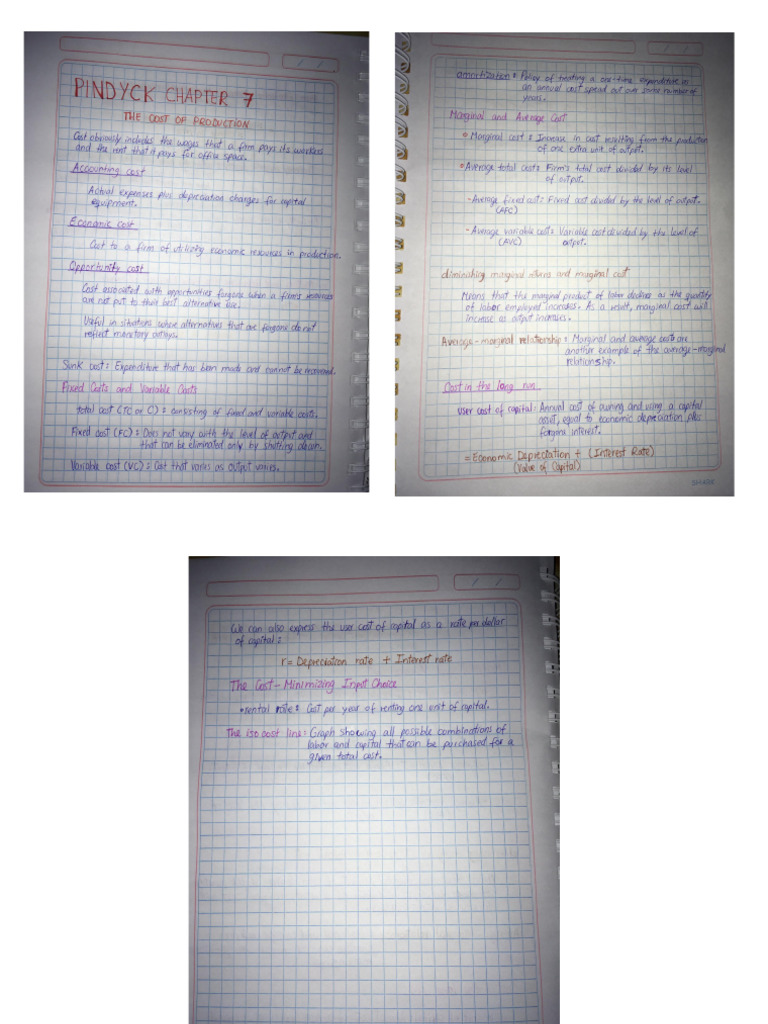 PINDYCK CHAPTER 7
THE COST OF PRODUCTION
Cost obviously includes the wages that a firm pays its workers
and the rent that it pays for office space.
Accounting cost
Actual expenses plus depreciation charges for capital
equipment.
Economic cost
Cost to a firm of utilizing economic resources in production.
Opportunity cost
Cost associated with opportunities forgone when a firm's resources
are not put to their best alternative use.
Useful in situations where alternatives that are forgone do not
reflect monetary outlays.
Sunk cost: Expenditure that has been made and cannot be recovered.
Fixed Costs and Variable Costs
total cost (TC or C): consisting of fixed and variable costs.
Fixed cost (FC): Does not vary with the level of output and
that can be eliminated only by shutting down.
Variable cost (VC): Cost that varies as output varies.
amortization: Policy of treating a one-time expenditure as
an annual cost spread out over some number of
years.
Marginal and Average Cost
• Marginal cost: Increase in cost resulting from the production
of one extra unit of output.
• Average total cost: Firm's total cost divided by its level
of output.
- Average fixed cost: Fixed cost divided by the level of output.
(AFC)
- Average variable cost: Variable cost divided by the level of
(AVC) output.
diminishing marginal returns and marginal cost
Means that the marginal product of labor declines as the quantity
of labor employed increases. As a result, marginal cost will
increase as output increases.
Average-marginal relationship: Marginal and average costs are
another example of the average-marginal
relationship.
Cost in the long run
user cost of capital: Annual cost of owning and using a capital
asset, equal to economic depreciation plus
forgone interest.
= Economic Depreciation + (Interest Rate)
(Value of Capital)
We can also express the user cost of capital as a rate per dollar
of capital:
r = Depreciation rate + Interest rate
The Cost-Minimizing Input Choice
• rental rate: Cost per year of renting one unit of capital.
The isocost line: Graph showing all possible combinations of
labor and capital that can be purchased for a
given total cost.